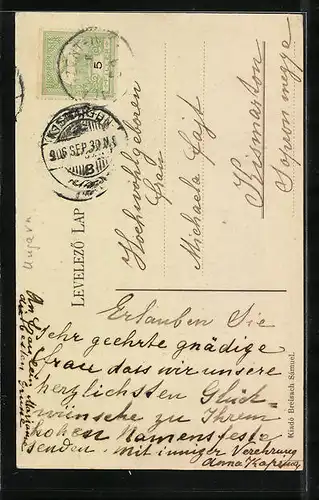 5
KISMARTON
906 SEP. 30
B
Ungarn
LEVELEZŐ LAP
Hochwohlgeboren
Frau
Michaela Gajt
Kismarton
Sopron megye
Erlauben Sie
sehr geehrte gnädige
frau dass wir unsere
herzlichsten Glück-
wünsche zu Ihrem
hohen Namensfeste
senden. Mit inniger Verehrung
Anna
An Frau
die besten
Kiadó Breisach Sámuel.